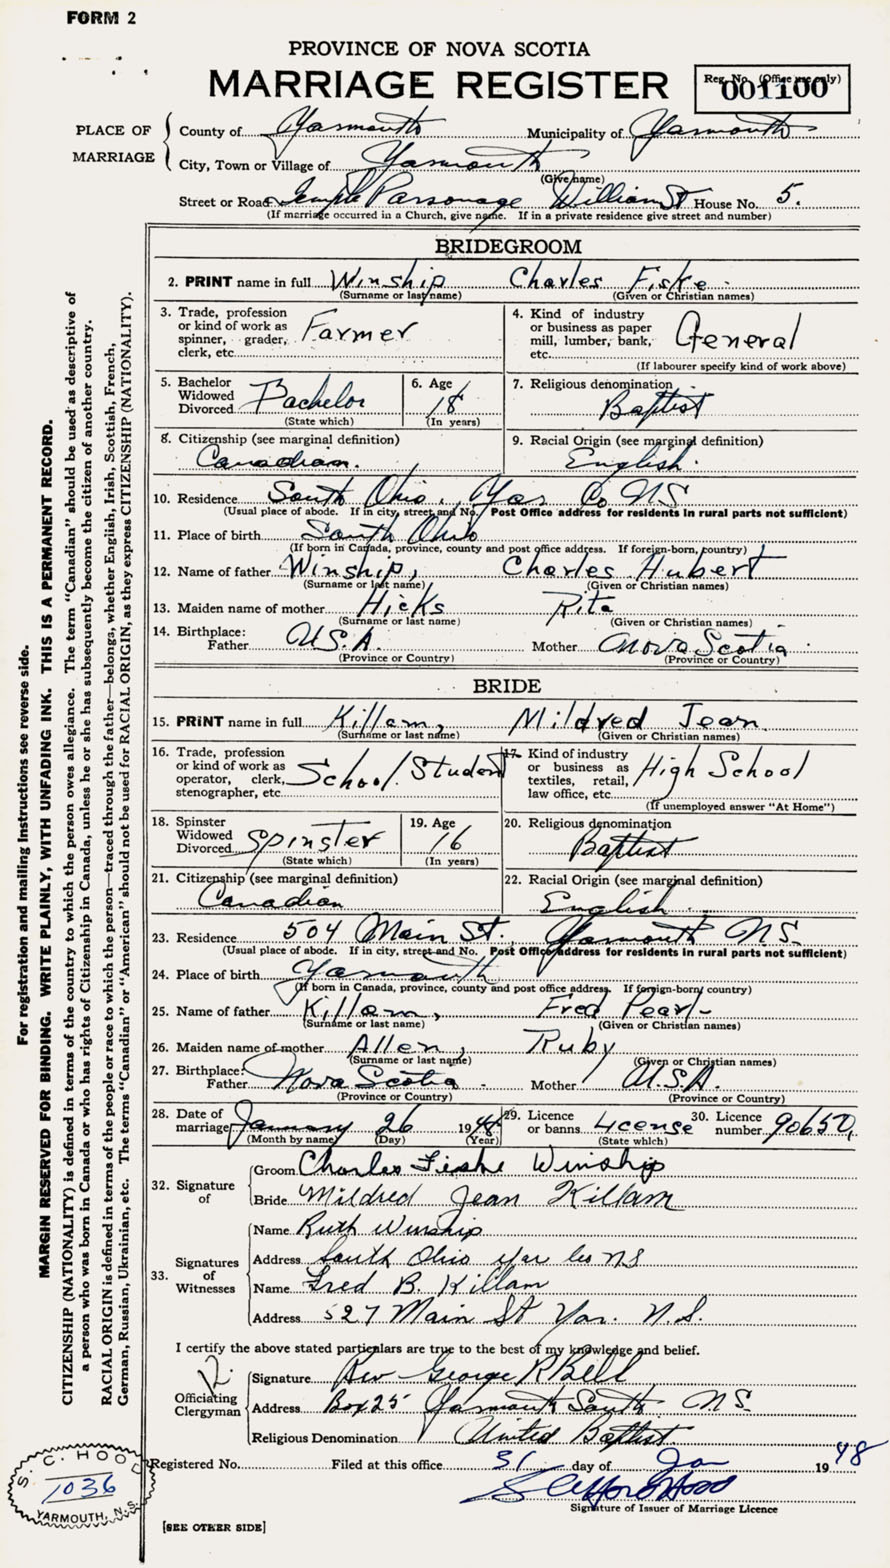 FORM 2
PROVINCE OF NOVA SCOTIA
MARRIAGE REGISTER
Reg. No. (Office use only)
001100
PLACE OF MARRIAGE
County of Yarmouth Municipality of Yarmouth
City, Town or Village of Yarmouth
(Give name)
Street or Road Temple Parsonage William St House No. 5.
(If marriage occurred in a Church, give name. If in a private residence give street and number)
BRIDEGROOM
2. PRINT name in full Winship Charles Fiske
(Surname or last name) (Given or Christian names)
3. Trade, profession or kind of work as spinner, grader, clerk, etc. Farmer
4. Kind of industry or business as paper mill, lumber, bank, etc. General
(If labourer specify kind of work above)
5. Bachelor Widowed Divorced Bachelor (State which)
6. Age 18 (In years)
7. Religious denomination Baptist
8. Citizenship (see marginal definition) Canadian.
9. Racial Origin (see marginal definition) English.
10. Residence South Ohio, Yar Co NS
(Usual place of abode. If in city, street and No. Post Office address for residents in rural parts not sufficient)
11. Place of birth South Ohio
(If born in Canada, province, county and post office address. If foreign-born, country)
12. Name of father Winship, Charles Hubert
(Surname or last name) (Given or Christian names)
13. Maiden name of mother Hicks Rita
(Surname or last name) (Given or Christian names)
14. Birthplace: Father U.S.A. Mother Nova Scotia
(Province or Country) (Province or Country)
BRIDE
15. PRINT name in full Killam, Mildred Jean
(Surname or last name) (Given or Christian names)
16. Trade, profession or kind of work as operator, clerk, stenographer, etc. School Student
17. Kind of industry or business as textiles, retail, law office, etc. High School
(If unemployed answer "At Home")
18. Spinster Widowed Divorced Spinster (State which)
19. Age 16 (In years)
20. Religious denomination Baptist
21. Citizenship (see marginal definition) Canadian
22. Racial Origin (see marginal definition) English.
23. Residence 504 Main St. Yarmouth N.S.
(Usual place of abode. If in city, street and No. Post Office address for residents in rural parts not sufficient)
24. Place of birth Yarmouth
(If born in Canada, province, county and post office address. If foreign-born country)
25. Name of father Killam, Fred Pearl
(Surname or last name) (Given or Christian names)
26. Maiden name of mother Allen, Ruby
(Surname or last name) (Given or Christian names)
27. Birthplace: Father Nova Scotia Mother U.S.A.
(Province or Country) (Province or Country)
28. Date of marriage January 26 1948
(Month by name) (Day) (Year)
29. Licence or banns License (State which)
30. Licence number 90650.
32. Signature of
Groom Charles Fiske Winship
Bride Mildred Jean Killam
33. Signatures of Witnesses
Name Ruth Winship
Address South Ohio Yar Co NS
Name Fred B. Killam
Address 527 Main St Yar. N.S.
I certify the above stated particulars are true to the best of my knowledge and belief.
Officiating Clergyman
Signature Rev George R Bell
Address Box 25 Yarmouth South N.S.
Religious Denomination United Baptist
Registered No. Filed at this office 31 day of Jan 1948
Signature of Issuer of Marriage Licence
[SEE OTHER SIDE]
S. C. HOOD
1036
YARMOUTH, N.S.
For registration and mailing instructions see reverse side.
MARGIN RESERVED FOR BINDING. WRITE PLAINLY, WITH UNFADING INK. THIS IS A PERMANENT RECORD.
CITIZENSHIP (NATIONALITY) is defined in terms of the country to which the person owes allegiance. The term "Canadian" should be used as descriptive of
a person who was born in Canada or who has rights of Citizenship in Canada, unless he or she has subsequently become the citizen of another country.
RACIAL ORIGIN is defined in terms of the people or race to which the person—traced through the father—belongs, whether English, Irish, Scottish, French,
German, Russian, Ukrainian, etc. The terms "Canadian" or "American" should not be used for RACIAL ORIGIN, as they express CITIZENSHIP (NATIONALITY).